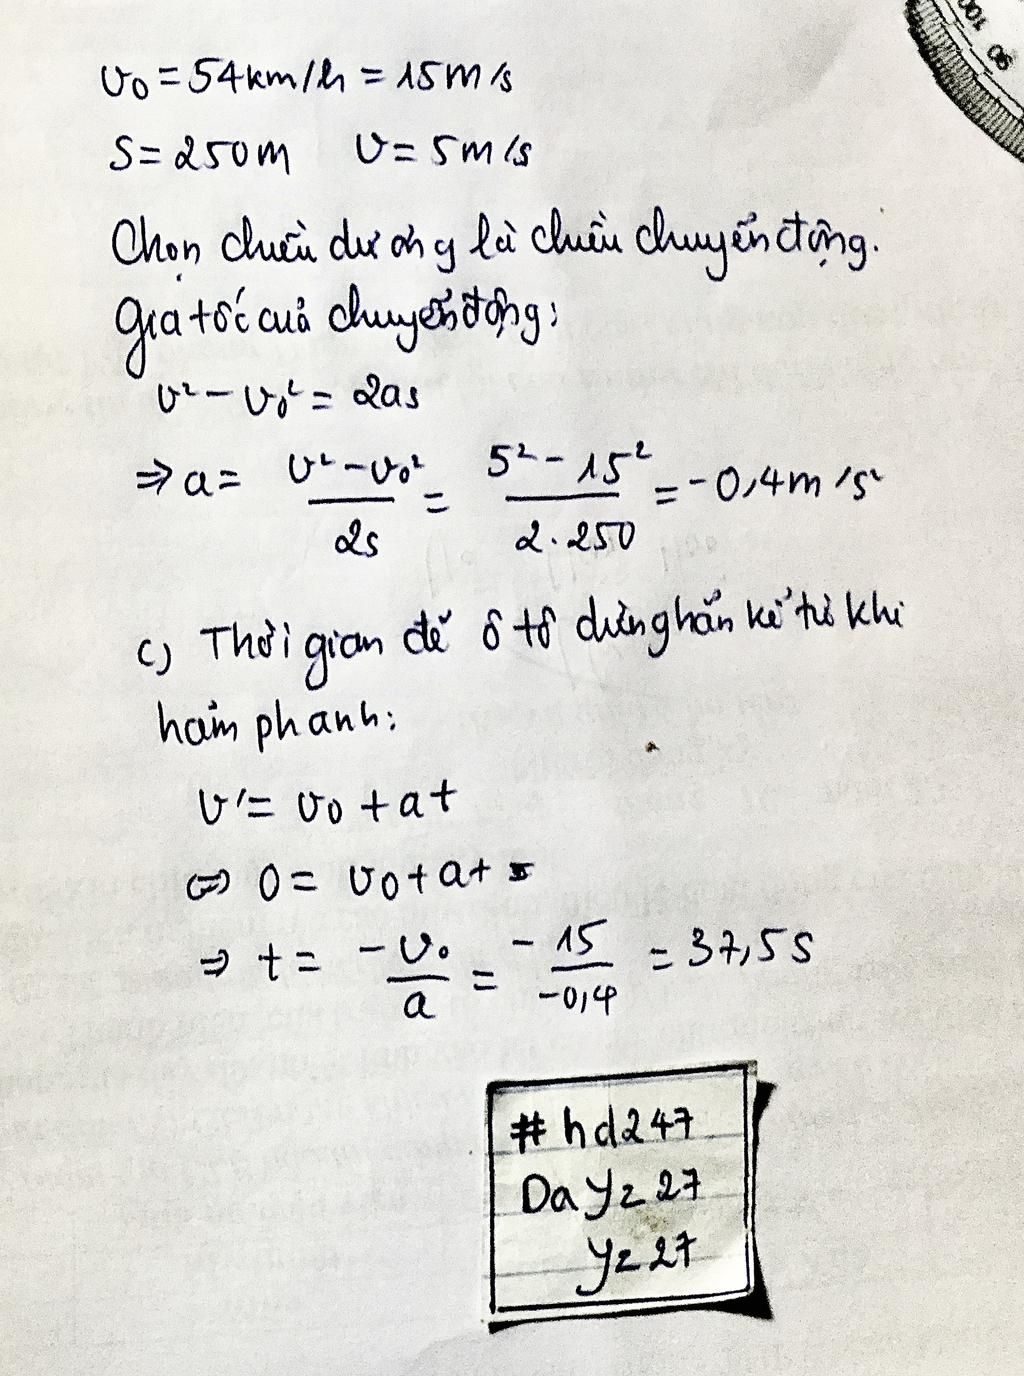 v₀ = 54km/h = 15m/s
S = 250m v = 5m/s
Chọn chiều dương là chiều chuyển động.
Gia tốc cuả chuyển động:
v² - v₀² = 2as
⇒ a = (v² - v₀²)/(2s) = (5² - 15²)/(2.250) = -0,4m/s²
c) Thời gian để ô tô dừng hẳn kể từ khi
hảm phanh:
v' = v₀ + at
⇔ 0 = v₀ + at
⇒ t = -v₀/a = -15/-0,4 = 37,5s
# hd247
Da Yz 27
Yz 27
100
90